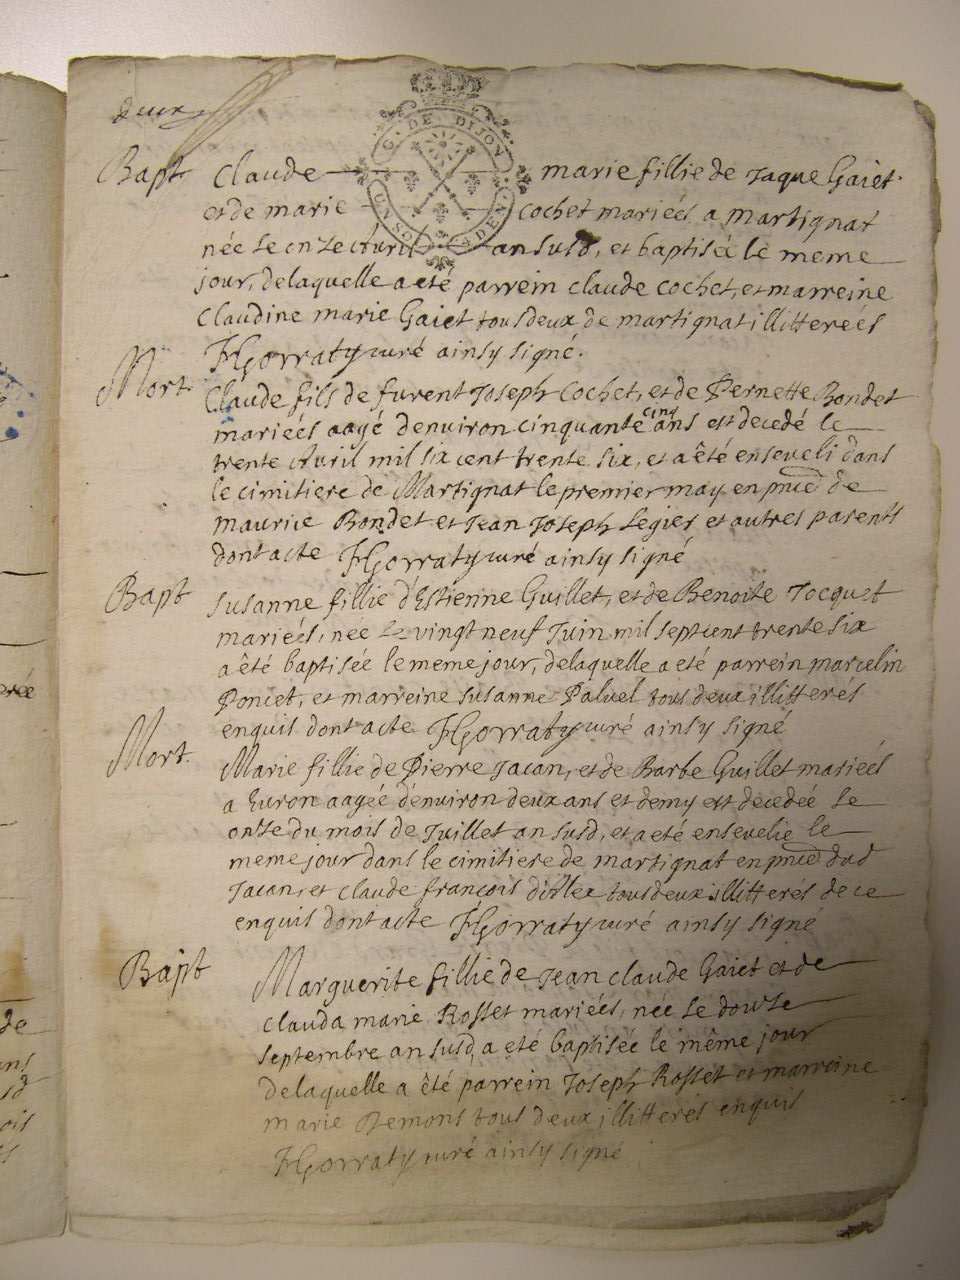 deux
G. DE DIJON
UN SOL 4 DEN.
Bapt Claude marie fillie de Jaque Gaiet.
et de marie Cochet mariées a martignat
née le onze Avril an susd, et baptisée le meme
jour, delaquelle a eté parrein claude cochet, et marreine
Claudine marie Gaiet tous deux de martignat illitterées
FGorraty curé ainsy signé.
Mort. Claude fils de furent Joseph Cochet, et de Pernette Bondet
mariées aagé denviron cinquante cinq ans est decedé le
trente Avril mil six cent trente six, et a êté enseveli dans
le cimitiere de Martignat le premier may en pnce de
maurice Bondet et Jean Joseph Legier et autres parents
dont acte FGorraty curé ainsy signé
Bapt Susanne fillie d'Estienne Guillet, et de Benoite Jocquet
mariées, née le vingt neuf Juin mil sept cent trente six
a êté baptisée le meme jour, delaquelle a eté parrein marcelin
Poncet, et marreine susanne Paluel tous deux illitterés
enquis dont acte FGorraty curé ainsy signé
Mort. Marie fillie de Pierre Jacan, et de Barbe Guillet mariées
a Evron aagée denviron deux ans et demy est decedée le
onze du mois de Juillet an susd, et a eté ensevelie le
meme jour dans le cimitiere de martignat en pnce dud
Jacan, et Claude françois tous deux illitterés de ce
enquis dont acte FGorraty curé ainsy signé
Bapt Marguerite fillie de Jean claude Gaiet et de
clauda marie Rosset mariées, née le douze
septembre an susd, a eté baptisée le même jour
delaquelle a êté parrein Joseph Rosset et marreine
marie Demons tous deux illitterés enquis
FGorraty curé ainsy signé